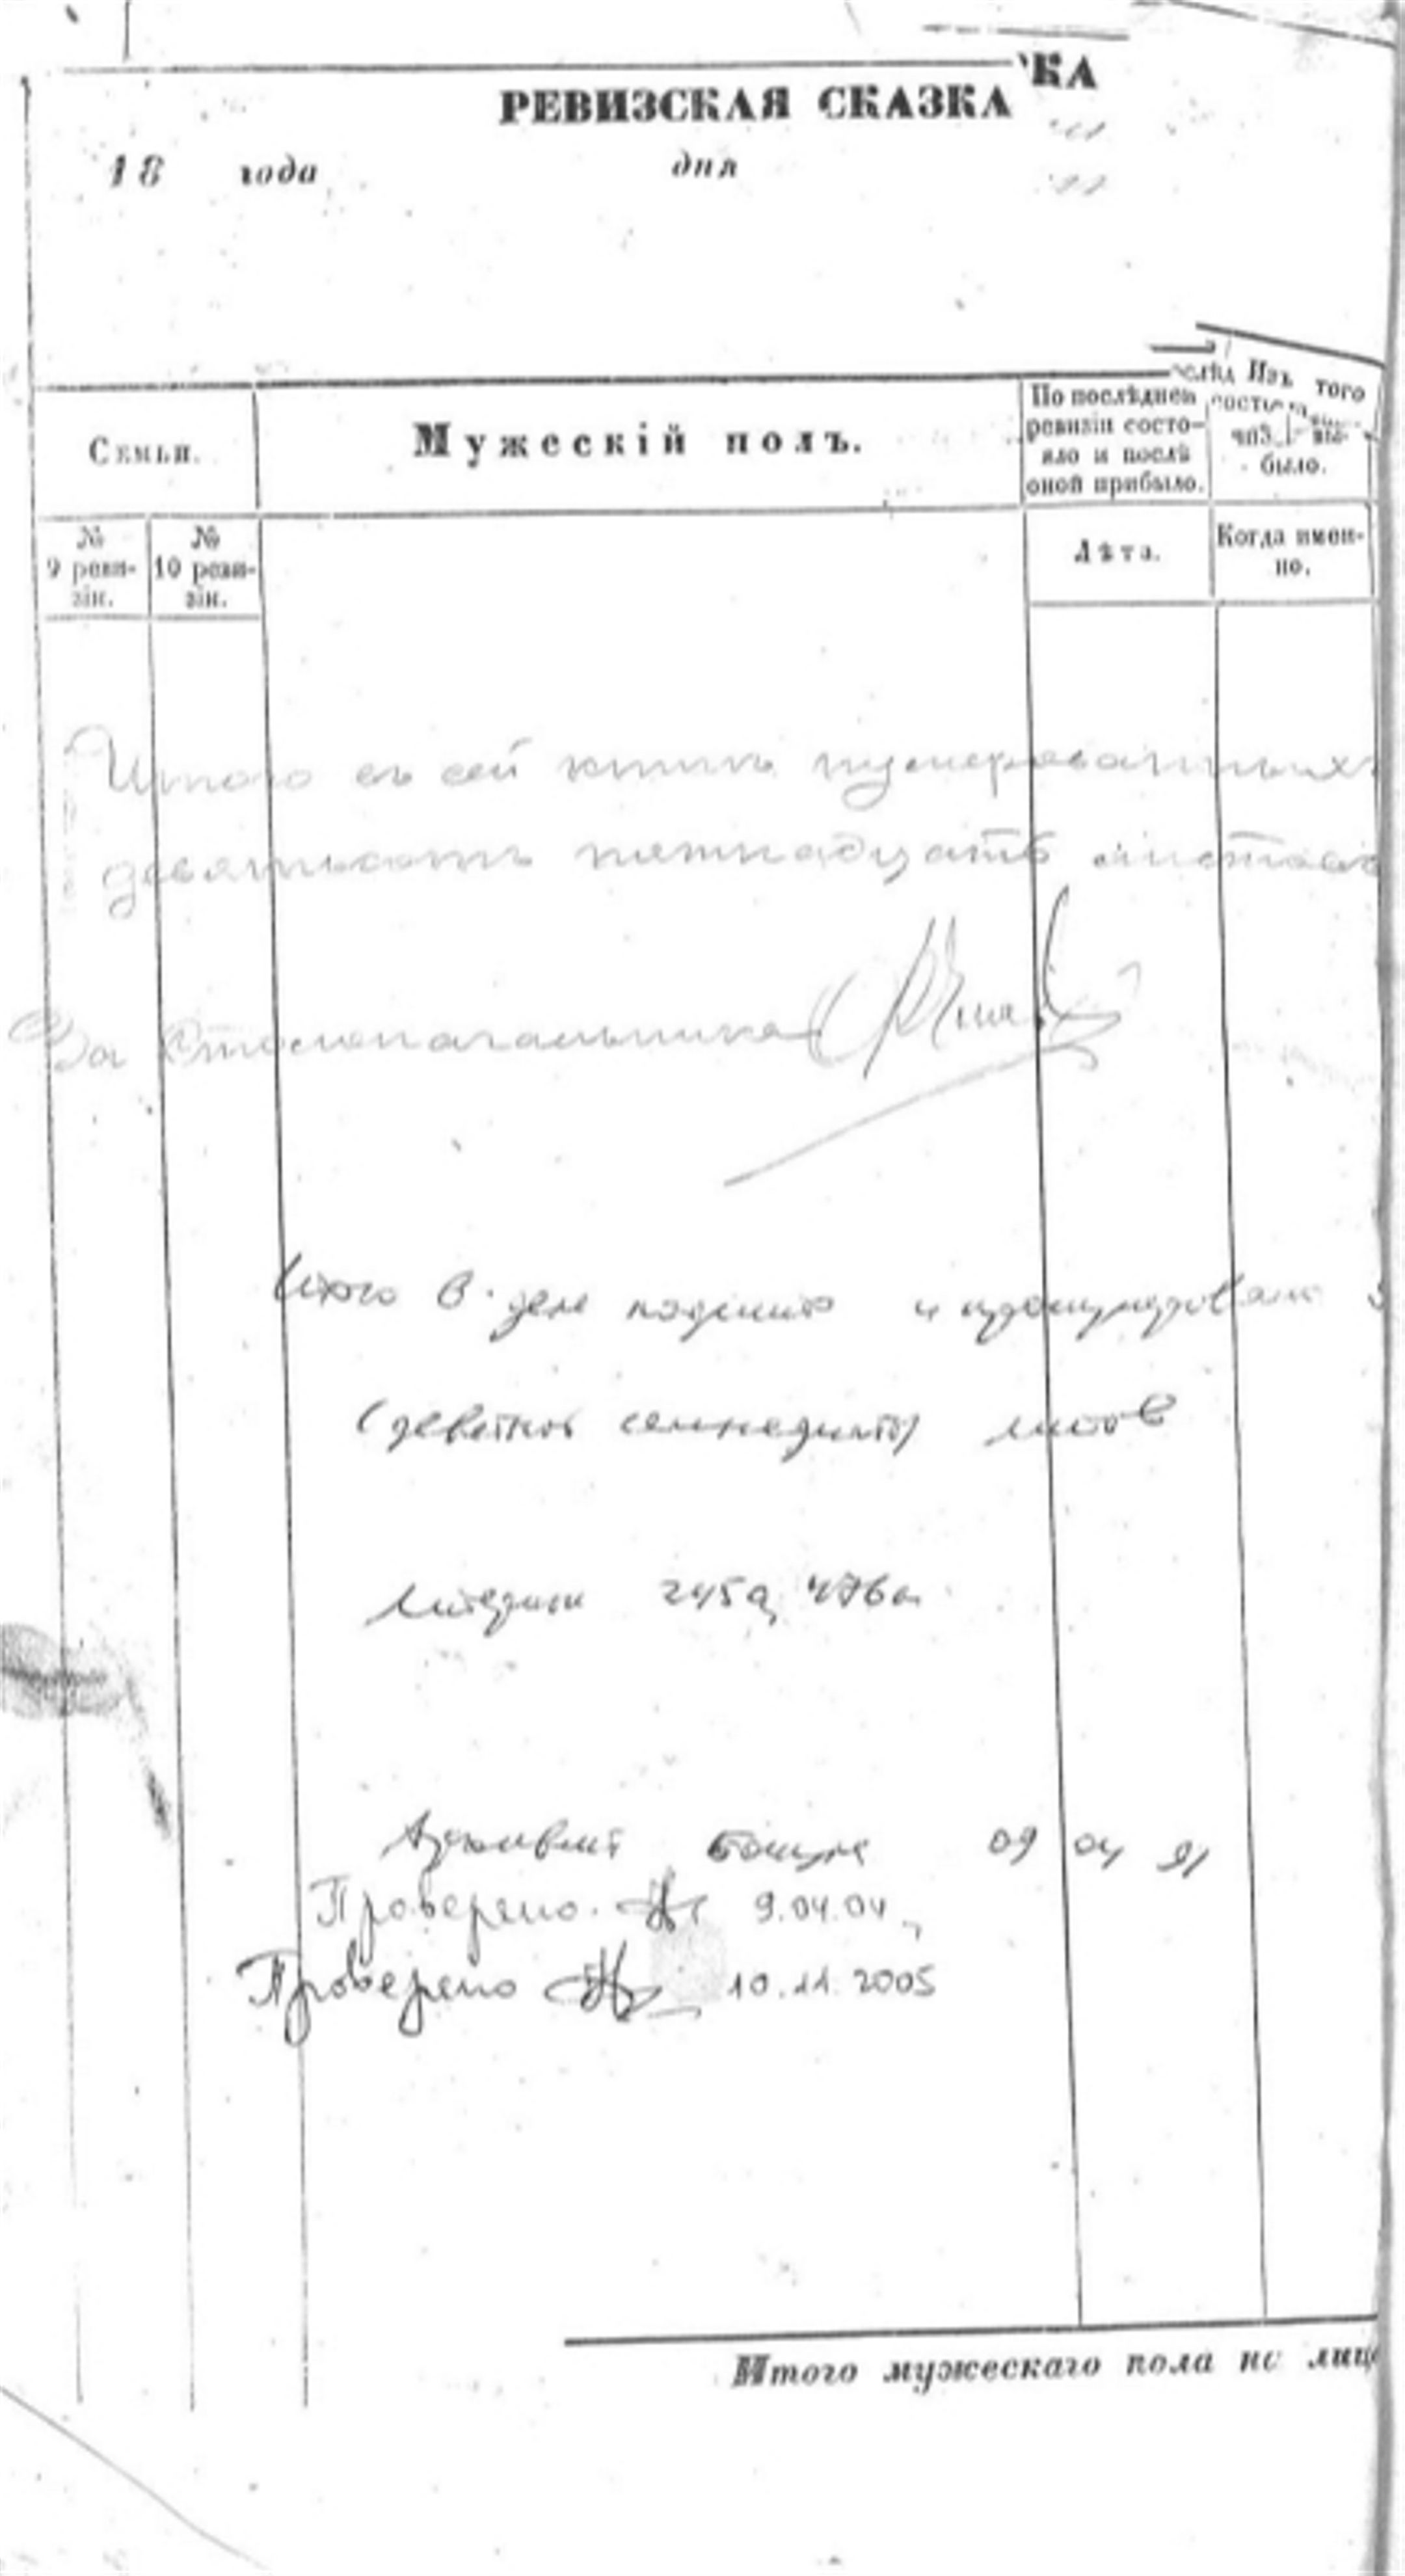 РЕВИЗСКАЯ СКАЗКА
КА
18 года дня
Семьи.
Мужескій полъ.
По послѣдней
ревизіи состо-
яло и послѣ
оной прибыло.
Изъ того
было.
№
9 реви-
зіи.
№
10 реви-
зіи.
Лѣта.
Когда имен-
но.
Итого въ сей книгѣ нумерованныхъ
девятьсотъ пятнадцать листовъ
За Столоначальника
Итого в деле подшито и пронумеровано
(девятьсот семнадцать) листов
литерные 245а, 476а
Архивист 09 04 91
Проверено. 9.04.04
Проверено 10.11.2005
Итого мужескаго пола на лиц